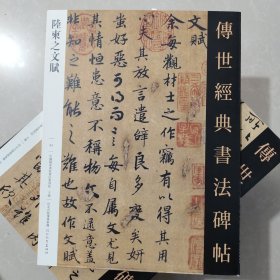 傳世經典書法碑帖
文賦
余每觀材士之作竊有以得其用
心夫其放言遣辭良多變矣妍
蚩好惡可得而言每自屬文尤見
其情恒患意不稱物文不逮意
蓋非知之難能之難也故作文賦
陸柬之文賦
傳
傳